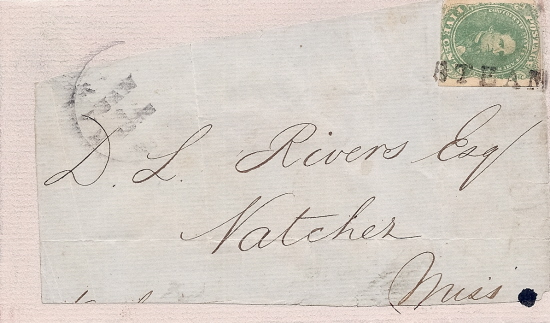 STEAM
D. L. Rivers Esq
Natchez
Miss